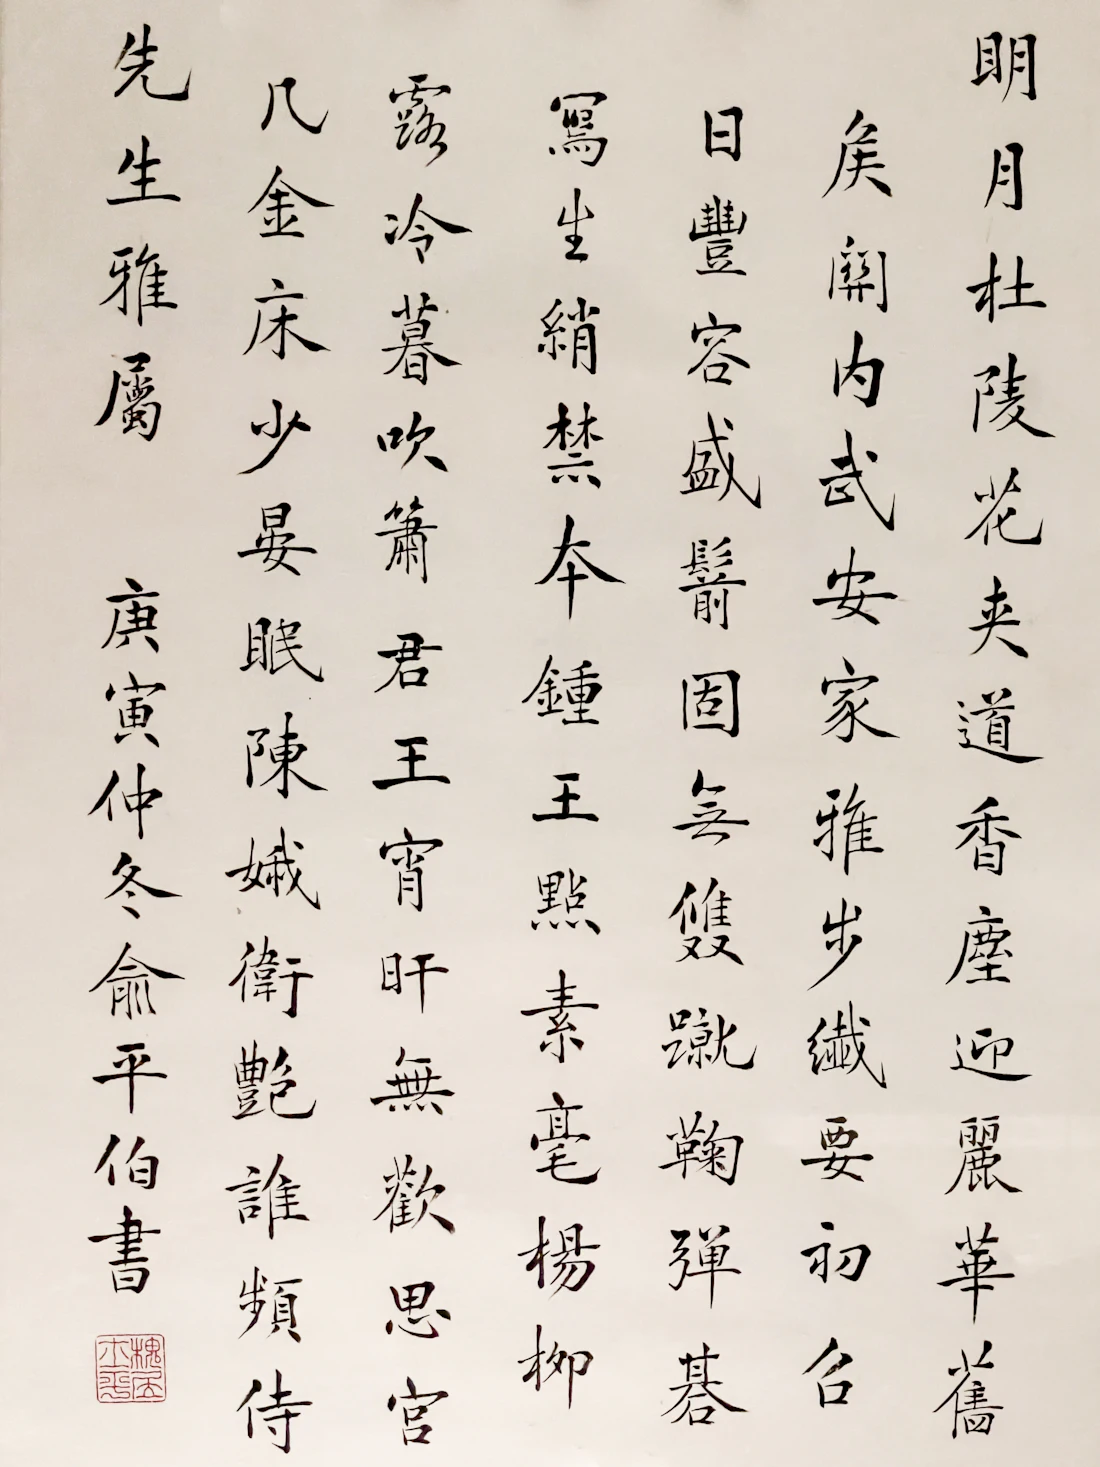 明月杜陵花夾道香塵迎麗華舊
矦關内武安家雅步纖要初召
日豐容盛鬋固無雙蹴鞠弹棊
寫生綃禁本鍾王點素毫楊柳
露冷暮吹簫君王宵旰無歡思宫
几金床少晏眠陳娥衛艶誰頻侍
先生雅屬 庚寅仲冬俞平伯書